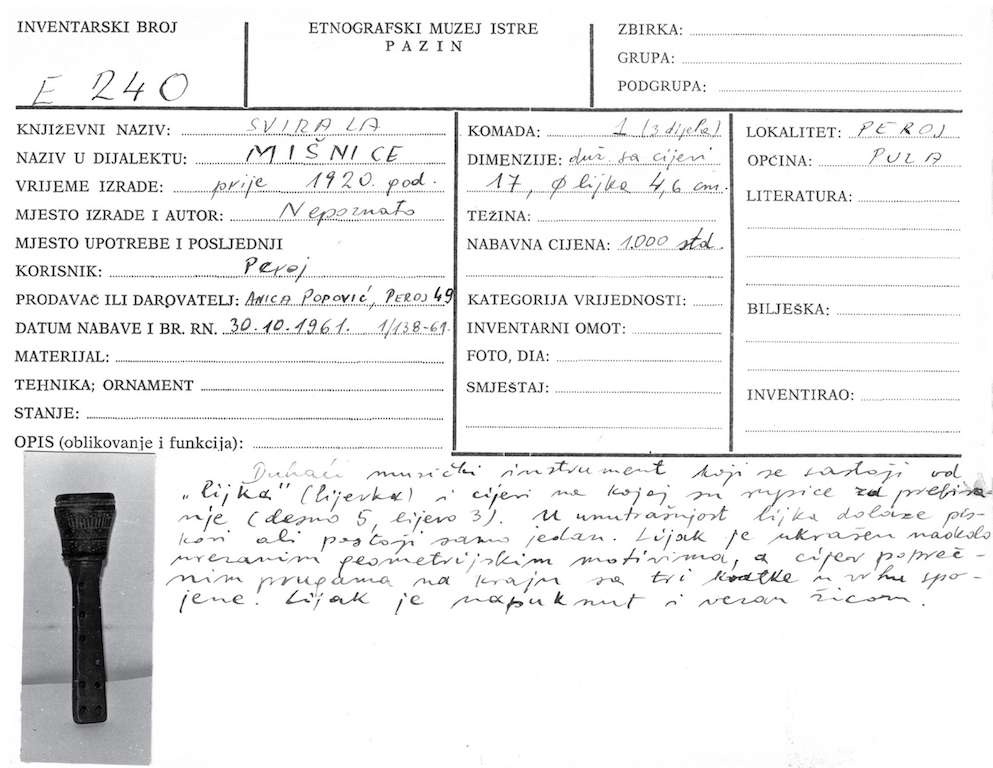 INVENTARSKI BROJ
E 240
ETNOGRAFSKI MUZEJ ISTRE
PAZIN
ZBIRKA:
GRUPA:
PODGRUPA:
KNJIŽEVNI NAZIV: SVIRALA
NAZIV U DIJALEKTU: MIŠNICE
VRIJEME IZRADE: prije 1920. god.
MJESTO IZRADE I AUTOR: Nepoznato
MJESTO UPOTREBE I POSLJEDNJI
KORISNIK: Peroj
PRODAVAČ ILI DAROVATELJ: ANICA POPOVIĆ, PEROJ 49
DATUM NABAVE I BR. RN. 30.10.1961. 1/138-61.
MATERIJAL:
TEHNIKA; ORNAMENT
STANJE:
OPIS (oblikovanje i funkcija):
KOMADA: 1 (3 dijela)
DIMENZIJE: duž. sa cijevi
17, ø lijka 4,6 cm.
TEŽINA:
NABAVNA CIJENA: 1.000 std.
KATEGORIJA VRIJEDNOSTI:
INVENTARNI OMOT:
FOTO, DIA:
SMJEŠTAJ:
LOKALITET: PEROJ
OPĆINA: PULA
LITERATURA:
BILJEŠKA:
INVENTIRAO:
Duhaći muzički instrument koji se sastoji od
„lijka" (lijevka) i cijevi na kojoj su rupice za prebira-
nje (desno 5, lijevo 3). U unutrašnjost lijka dolaze pis-
kovi ali postoji samo jedan. Lijak je ukrašen naokolo
urezanim geometrijskim motivima, a cijev popreč-
nim prugama na kraju sa tri u vrhu spo-
jene. Lijak je napuknut i vezan žicom.